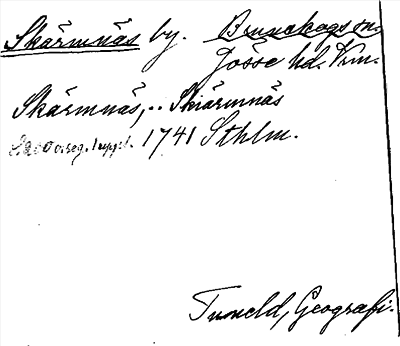 Skärmnäs by. Brunskogs sn.
Jösse hd. Vrm.
Skärmnäs, .. Skiärmnäs
1741 Sthlm.
Tuneld, Geografi.